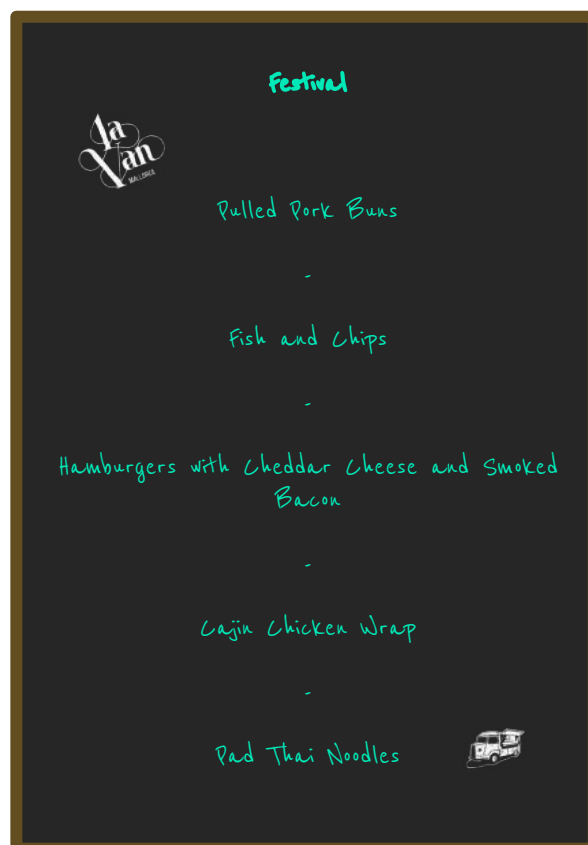 Festival
La
Van
Pulled Pork Buns
-
Fish and Chips
-
Hamburgers with Cheddar Cheese and Smoked
Bacon
-
Cajin Chicken Wrap
-
Pad Thai Noodles